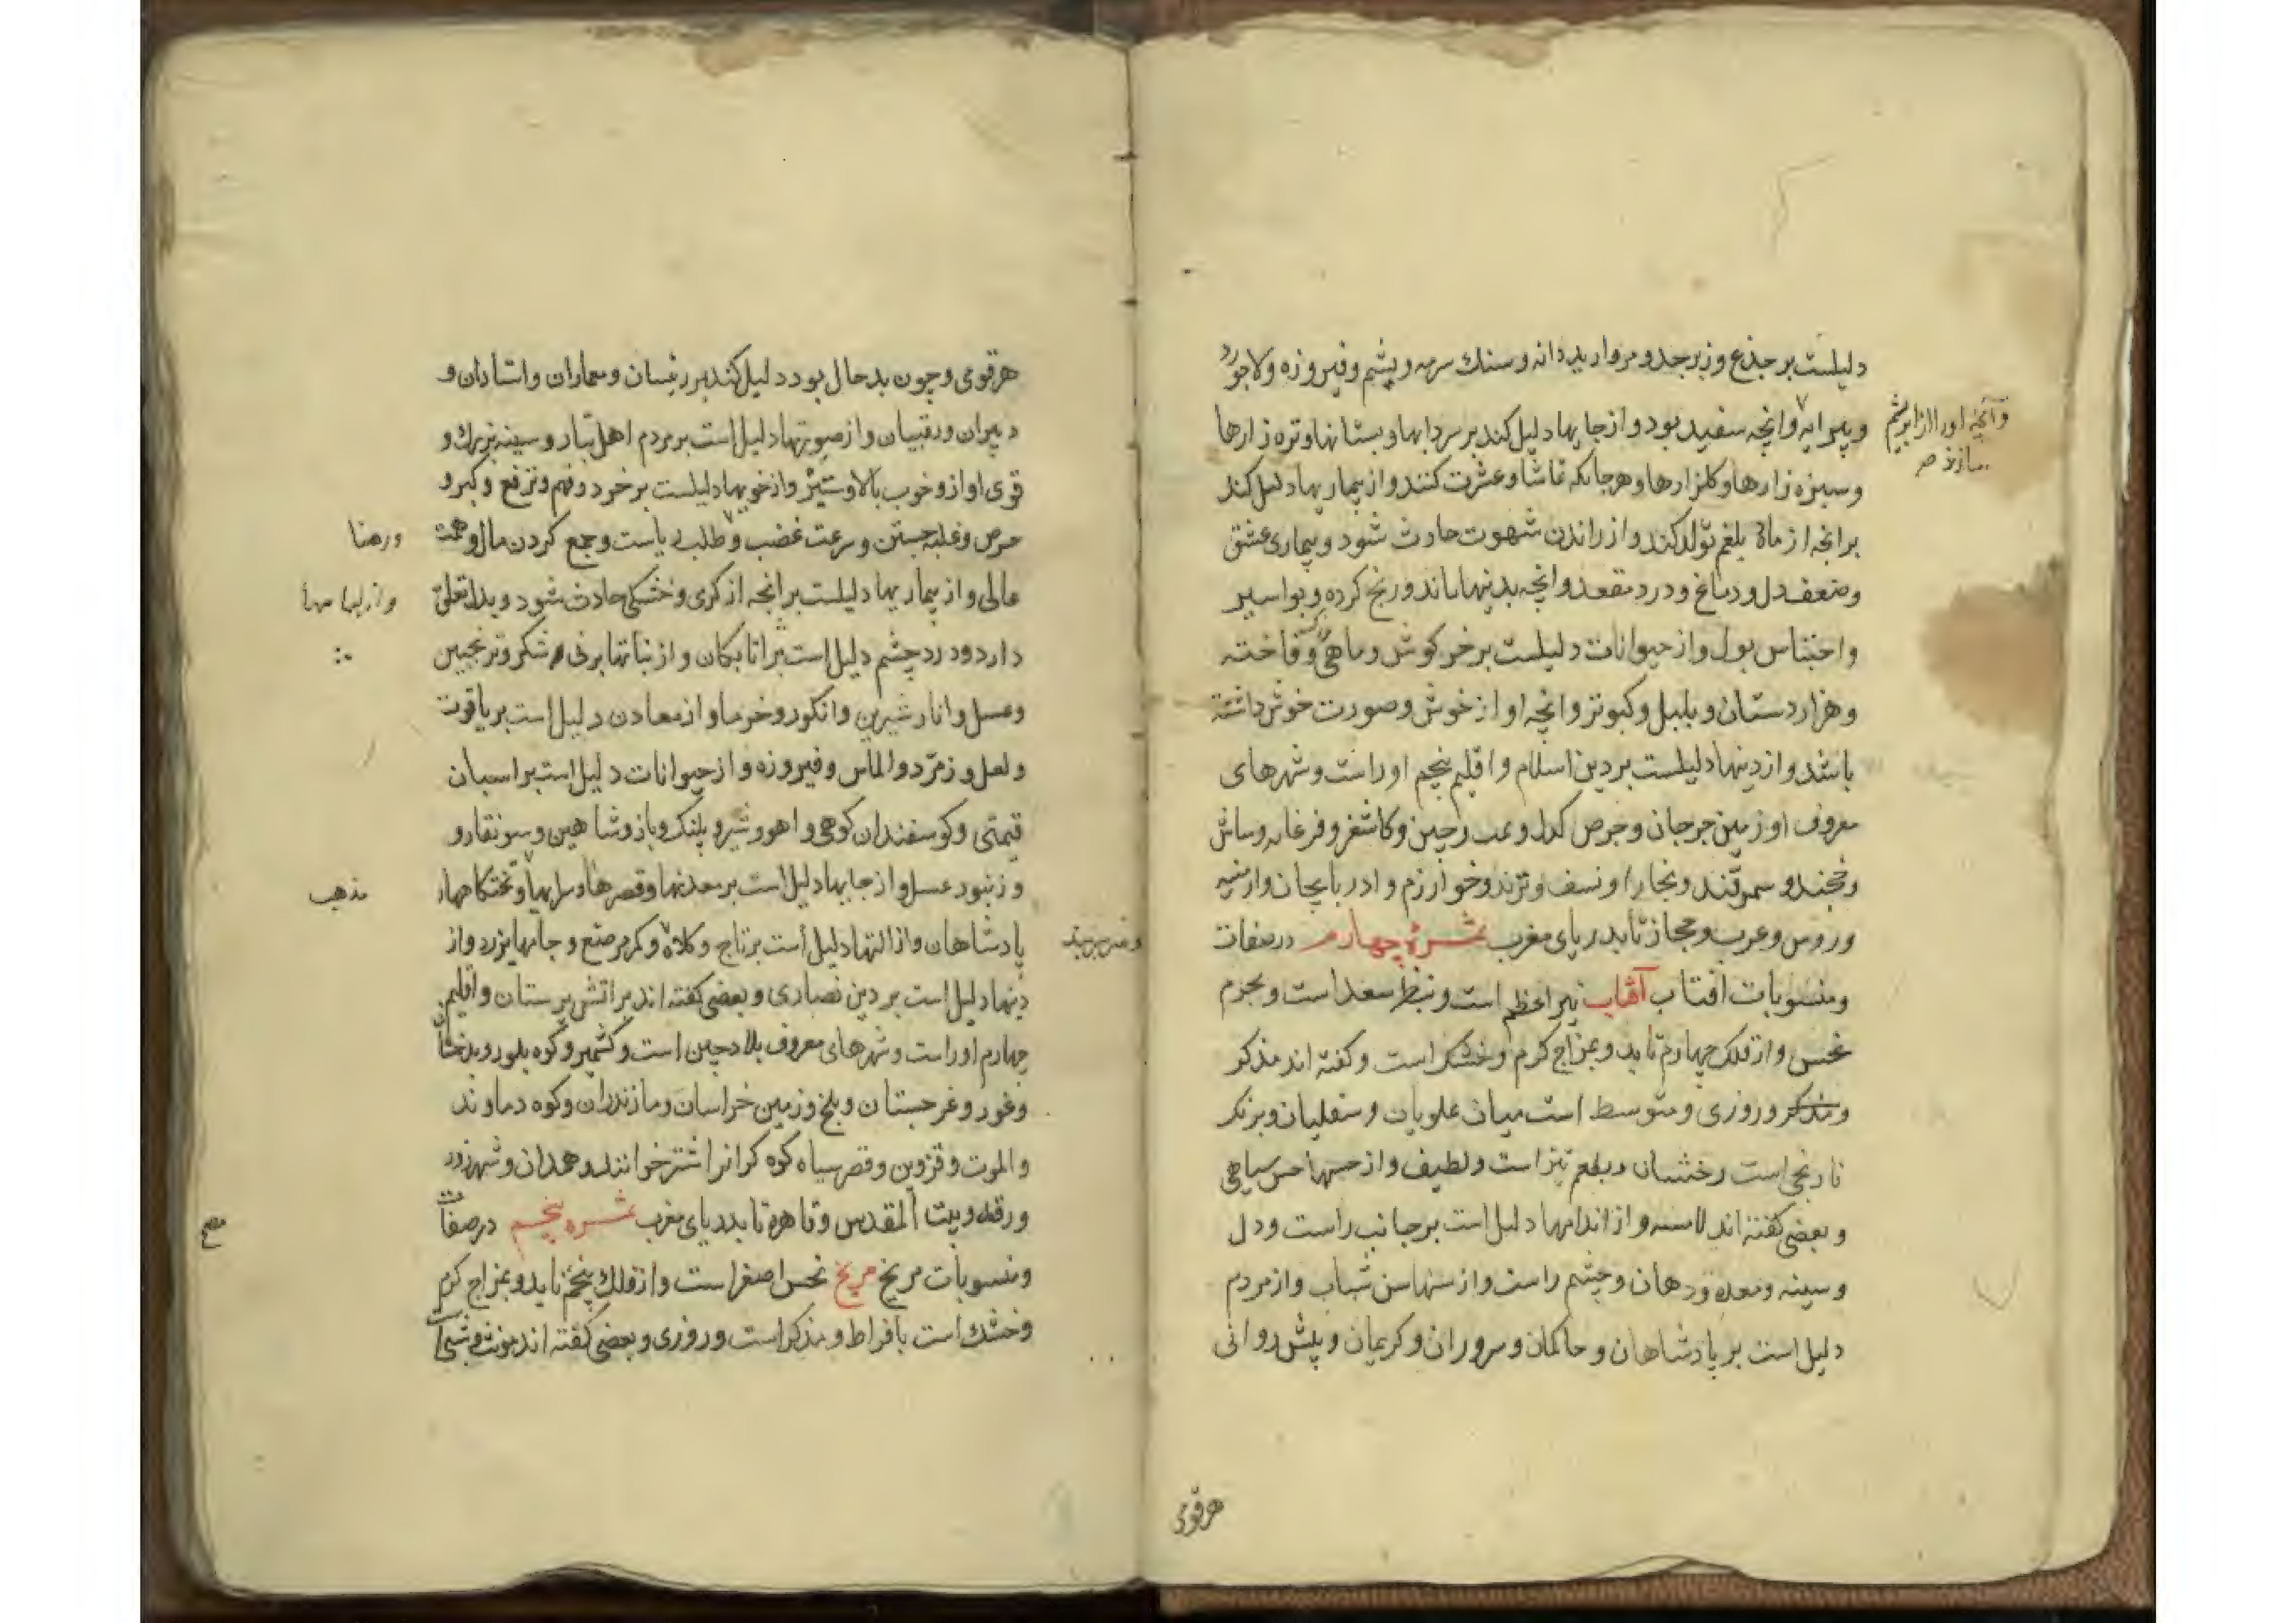 دلیلست بر جذع و زبرجد و مروارید دانه و سنك سرمه و یشم و فیروزه و لاجورد
و پیرایه و انچه سفید بود و از جایها دلیل کند بر سردابها و بستانها و تره زارها
وآنچه اورا از ابریشم
سازند صح
و سبزه زارها و کلزارها و هر جا که تماشا و عشرت کنند و از بیماریها دلیل کند
بر انچه از ماده بلغم تولد کند و از راندن شهوت حادث شود و بیماری عشق
و ضعف دل و دماغ و درد مقعد و انچه بدینها ماند و رنج کرده و بواسیر
و احتباس بول و از حیوانات دلیلست بر خرکوش و ماهی و فاخته
و هزاردستان و بلبل و کبوتر و انچه اواز خوش و صورت خوش داشته
باشد و از دینها دلیلست بر دین اسلام و اقلیم پنجم اوراست و شهرهای
معروف او زمین جرجان و چین و کاشغر و فرغانه
و خجند و سمرقند و بخارا و نسف و ترمد و خوارزم و ادربایجان و ارمنیه
و روس و عرب و حجاز تا بدریای مغرب ثمرهٔ چهارم در صفات
و منسوبات افتاب آفتاب نیر اعظم است و بنظر سعد است و بجرم
نحس و از فلک چهارم تابد و بمزاج کرم و خشک است و کفته اند مذکر
و مذکر و روزی و متوسط است میان علویات و سفلیان و برنک
نارنجی است رخشان و بطعم تیز است و لطیف و از حسها حس
و بعضی کفته اند لامسه و از اندامها دلیل است بر جانب راست و دل
و سینه و معده و دهان و چشم راست و از سنها سن شباب و از مردم
دلیل است بر پادشاهان و حاکمان و سروران و کریمان و پیش روانی
هر قومی
هر قومی و چون بد حال بود دلیل کند بر رئیسان و معماران و استادان و
دبیران و رقیبان و از صورتها دلیل است بر مردم اهل تبار و سینه بزرك و
قوی اواز و خوب بالا و ستیز و از خویها دلیلست بر خرد و فهم و ترفع و کبر و
حرص و غلبه جستن و سرعت غضب و طلب ریاست و جمع کردن مال و همت
عالی و از بیماریها دلیلست بر انچه از کرمی و خشکی حادث شود و بدل تعلق
دارد و درد چشم دلیل است بر اتابکان و از نباتها بر نی شکر و ترنجبین
و عسل و انار شیرین و انکور و خرما و از معادن دلیل است بر یاقوت
و لعل و زمرّد و الماس و فیروزه و از حیوانات دلیل است بر اسبان
قیمتی و کوسفندان کوهی و اهو و شیر و پلنک و باز و شاهین و سونقار و
و زنبور عسل و از جایها دلیل است بر معدنها و قصرها و سرایها و تختکاهها
مذهب
پادشاهان و از التها دلیل است بر تاج و کلاه و کمر مرصع و جامهای زرد و از
دینها دلیل است بر دین نصاری و بعضی کفته اند بر اتش پرستان و اقلیم
چهارم اوراست و شهرهای معروف بلاد چین است و کشمیر و کوه بلور و بدخشان
و غور و غرجستان و بلخ و زمین خراسان و مازندران و کوه دماوند
و الموت و قزوین و قصر سیاه کوه که انرا اشتر خوانند و همدان و شهرزور
و رقه و بیت المقدس و قاهره تا بدریای مغرب ثمره پنجم در صفات
و منسوبات مریخ مریخ نحس اصغر است و از فلك پنجم تابد و بمزاج کرم
و خشك است بافراط و مذکر است و روزی و بعضی کفته اند مونث و شبی است